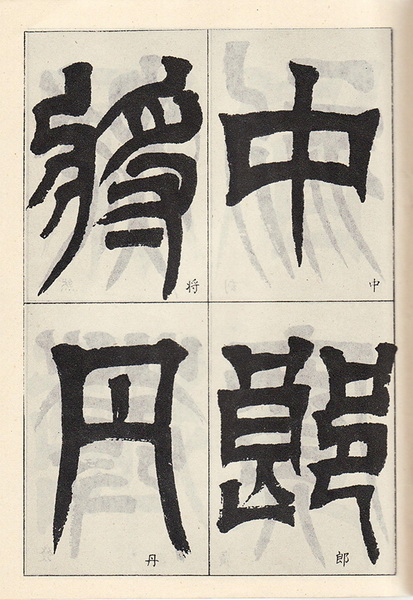 中
中
郎
郎
將
将
丹
丹